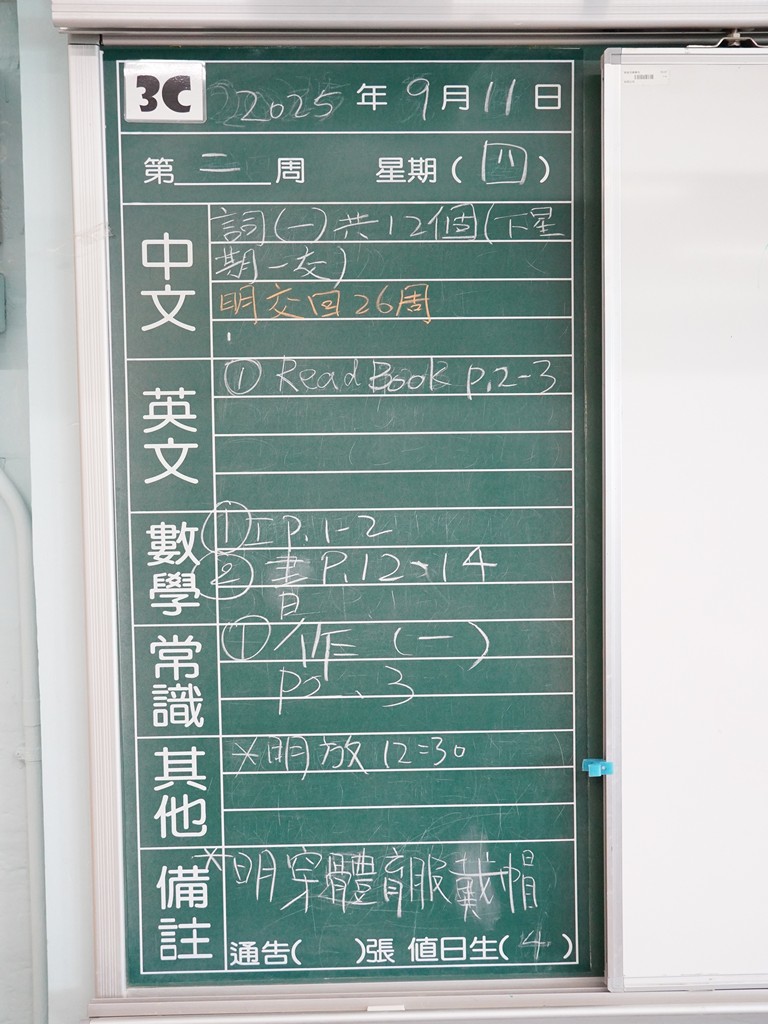 3C 2025年9月11日
第二周 星期(四)
中文
詞(一)共12個(下星
期一交)
明交回26周
英文
① Read Book p.2-3
數學
① 工 p.1-2
② 書 P.12、14
常識
① 作(一)
P2、3
其他
*明放12=30
備註
*明穿體育服戴帽
通告( )張 值日生(4)